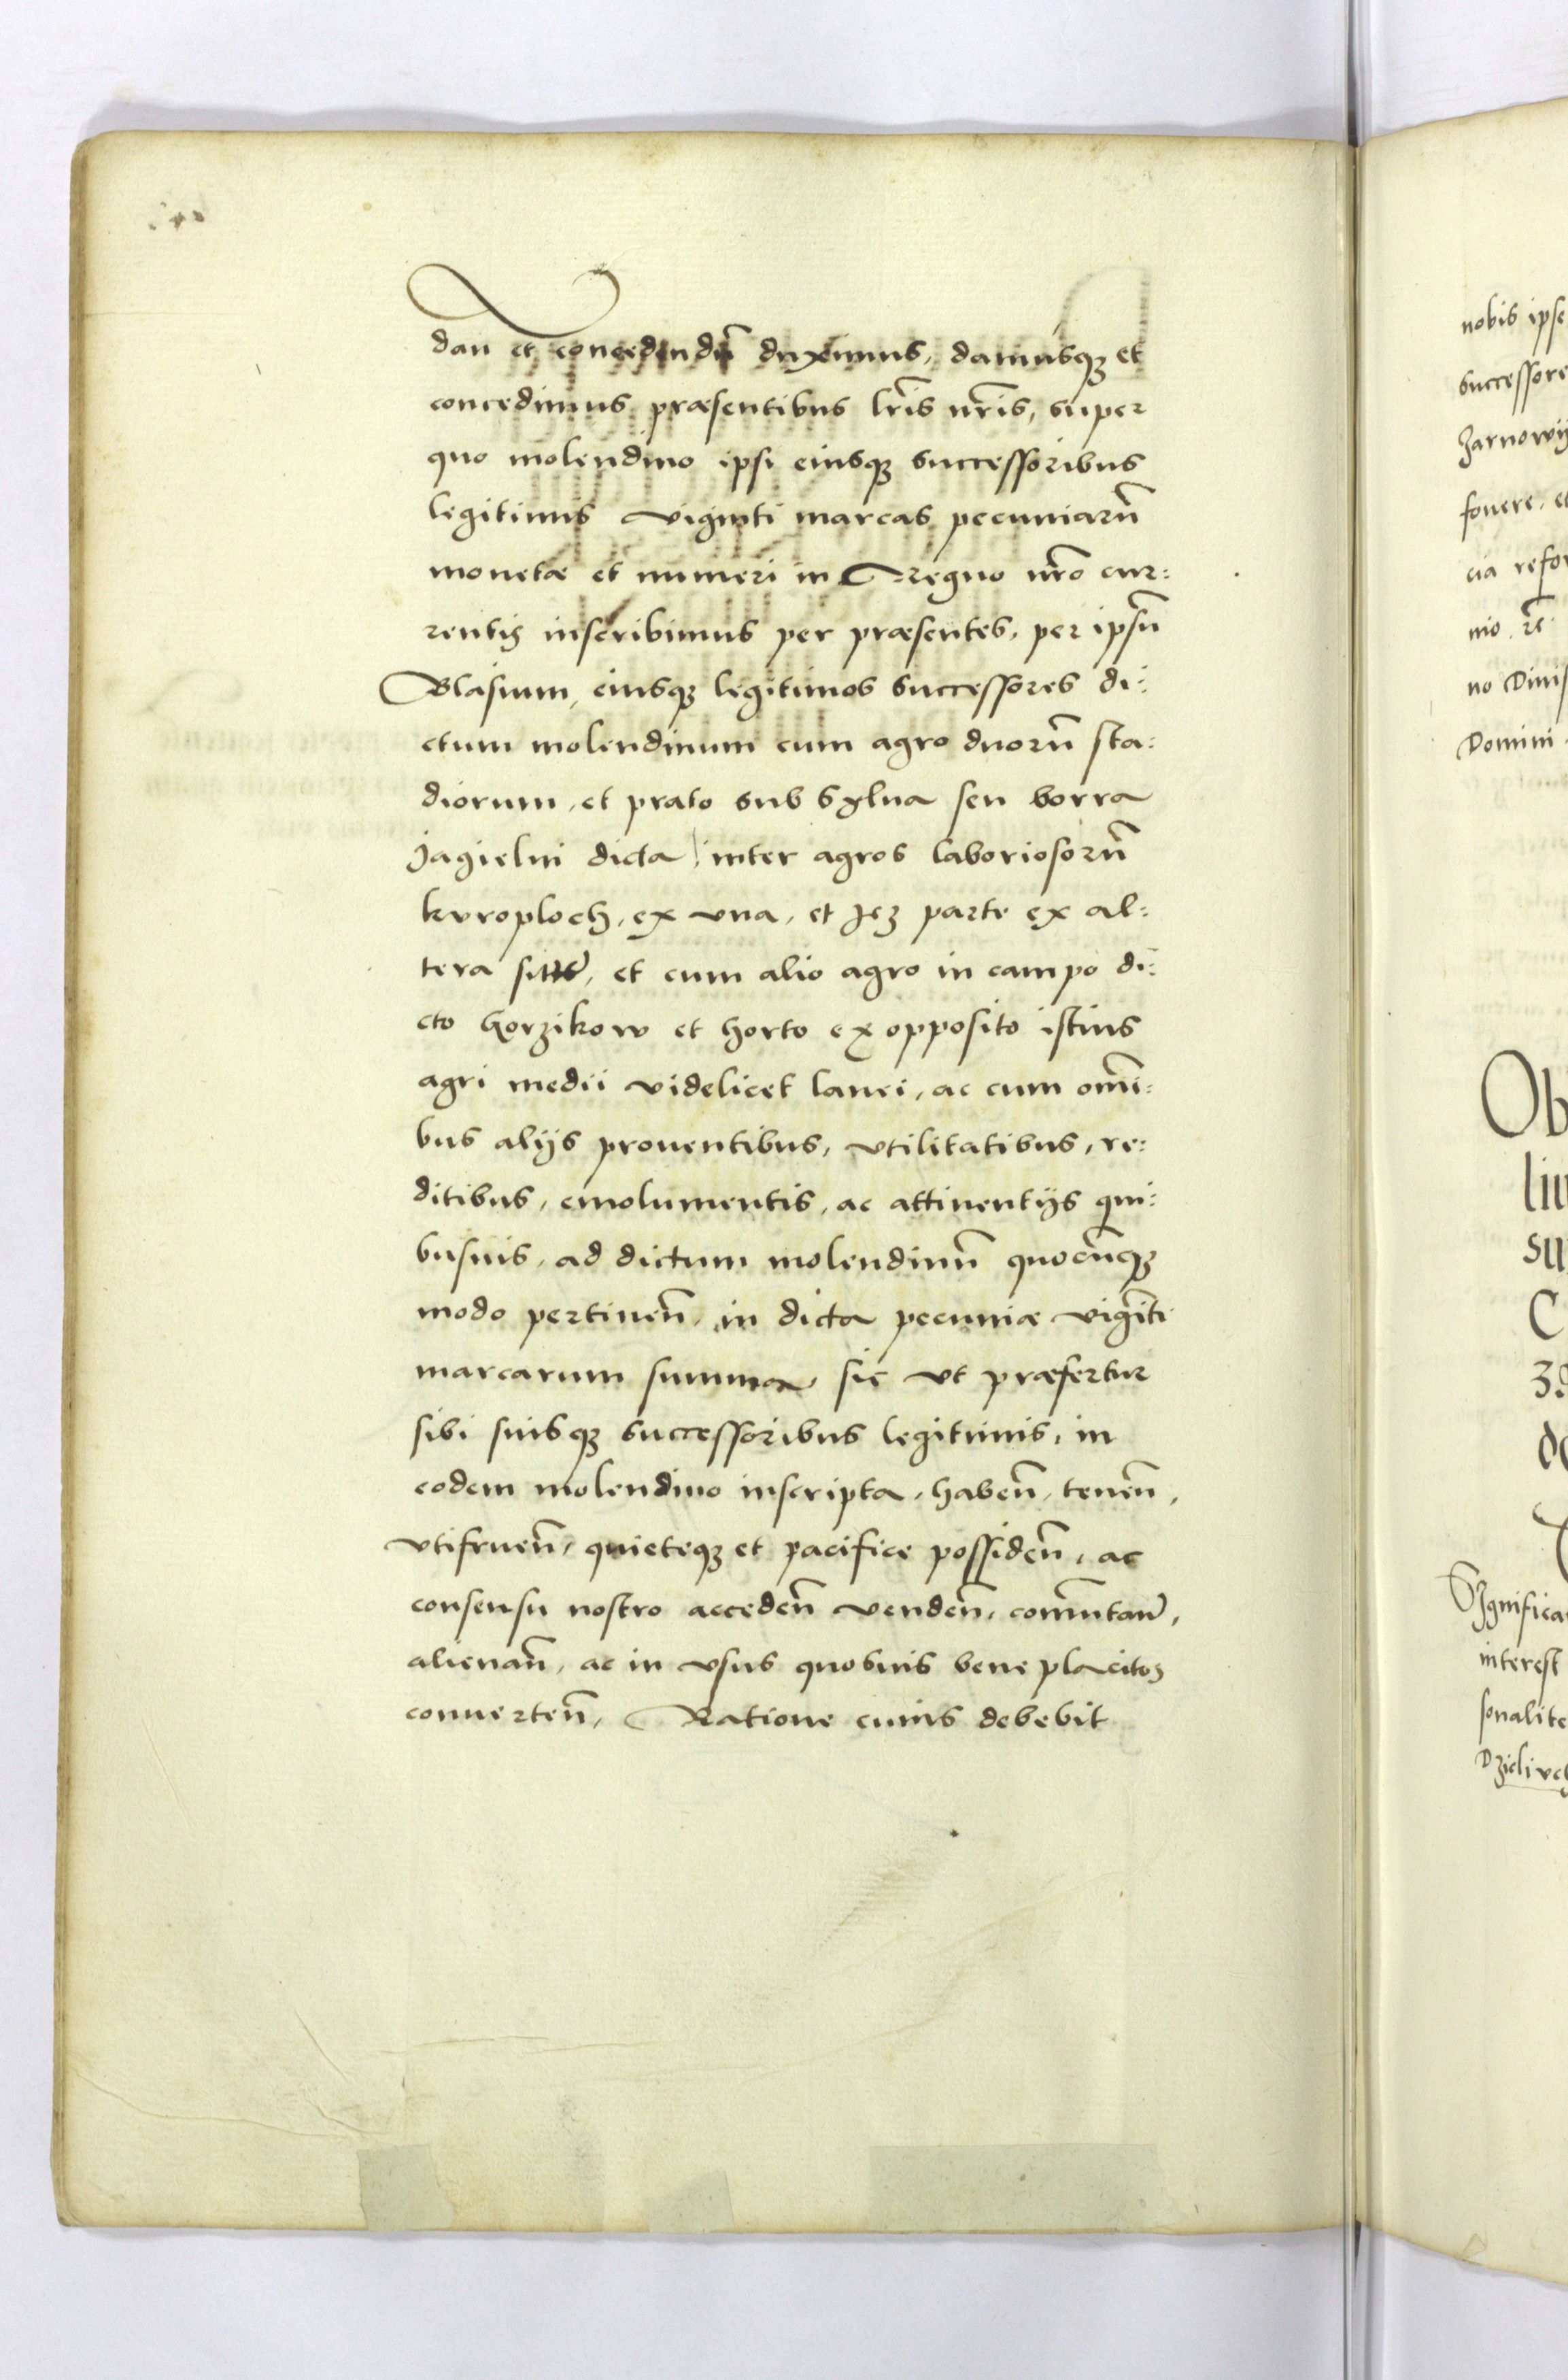 dan et concedendū duximus, damusqꝫ et
concedimus præsentibus lr̄is nr̄is, super
quo molendino ipsi eiusqꝫ successoribus
legitimis viginti marcas pecuniarū
monetæ et numeri in Regno nr̄o cur:
rentis inscribimus per præsentes, per ipsū
Blasium, eiusqꝫ legitimos successores di:
ctum molendinum cum agro duorū sta:
diorum, et prato sub sylua seu borra
Jagielni dicta, inter agros laboriosorū
kuroploch, ex vna, et Jez parte ex al:
tera et cum alio agro in campo di:
cto Gorzikow et horto ex opposito istius
agri medii videlicet lanei, ac cum omī:
bus alijs prouentibus, vtilitatibus, re:
ditibus, emolumentis, ac attinentijs qui:
busuis, ad dictum molendinū quocūqꝫ
modo pertinen̄, in dicta pecuniæ vigīti
marcarum summa, sic vt præfertur
sibi suisqꝫ successoribus legitimis, in
eodem molendino inscripta, haben̄, tenen̄,
vtifruen̄, quieteqꝫ et pacifice possiden̄, ac
consensu nostro acceden̄ venden̄, com̄utan̄,
alienan̄, ac in vsus quosuis bene placitos
conuerten̄, Ratione cuius debebit
nobis ipse
successore
Zarnowij
fouere, et
cia refor
nio
no Diuis
Domini
Ob
liu
su
C
Significa
interest
sonalite